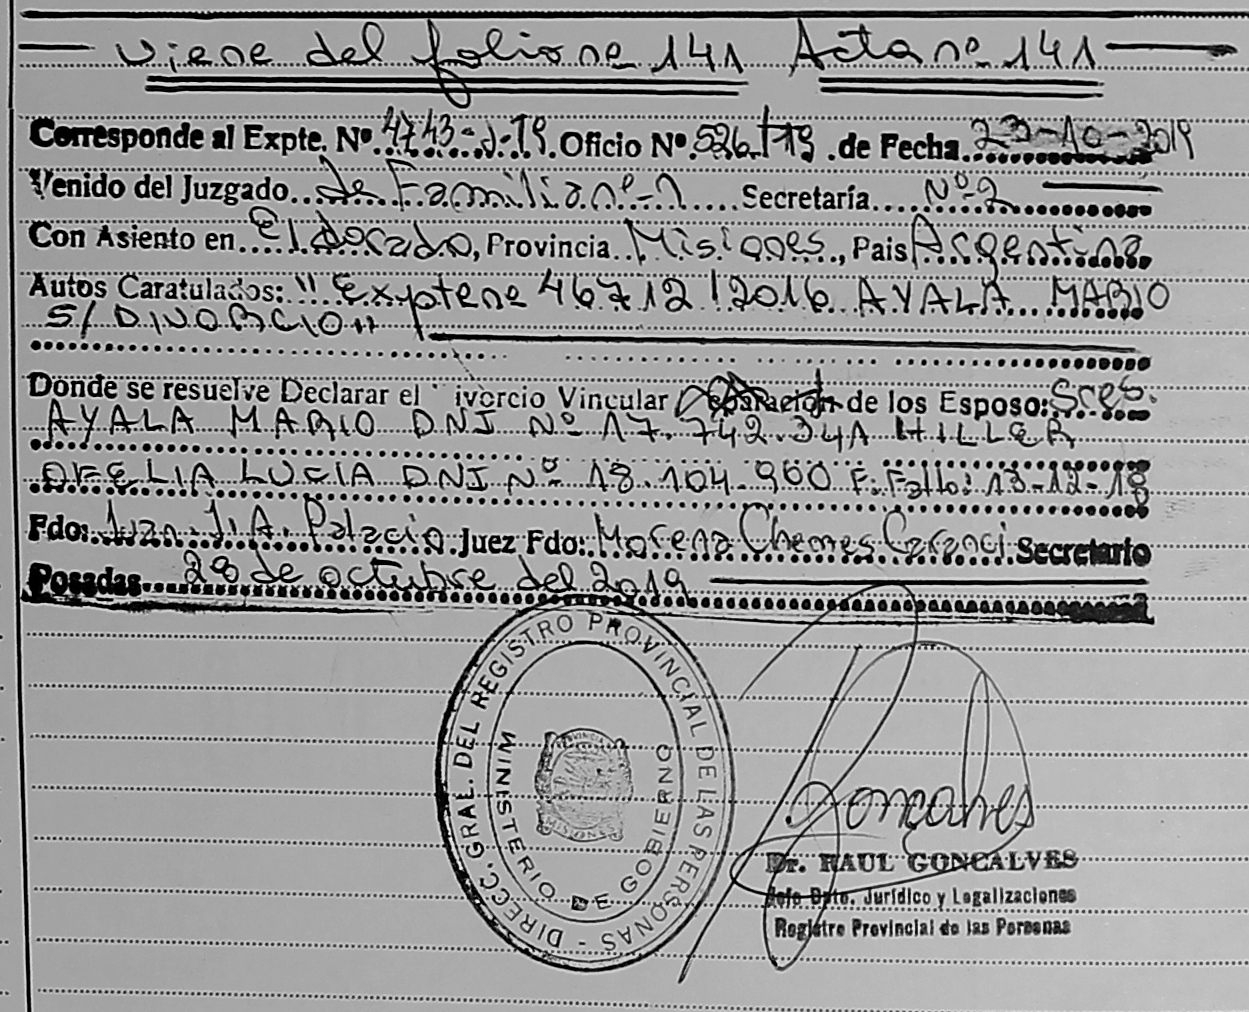 viene del folio nº 141 Acta nº 141
Corresponde al Expte. Nº 4743-J-19 Oficio Nº 526/19 de Fecha 23-10-2019
Venido del Juzgado de Familia nº-1 Secretaría Nº-2
Con Asiento en Eldorado, Provincia Misiones, Pais Argentina
Autos Caratulados: "Expte nº 46712/2016 AYALA MARIO
S/ DIVORCIO"
Donde se resuelve Declarar el ivorcio Vincular de los Esposo: Sres.
AYALA MARIO DNI Nº 17.742.341 HILLER
OFELIA LUCIA DNI Nº 18.104.900 F. Fallo: 13-12-18
Fdo: Juan J. A. Palacio Juez Fdo: Morena Chemes Caronci Secretario
Posadas 28 de octubre del 2019
DIRECC. GRAL. DEL REGISTRO PROVINCIAL DE LAS PERSONAS -
MINISTERIO DE GOBIERNO
PROVINCIA
MISIONES
Goncalves
Dr. RAUL GONCALVES
Jefe Dpto. Jurídico y Legalizaciones
Registro Provincial de las Personas